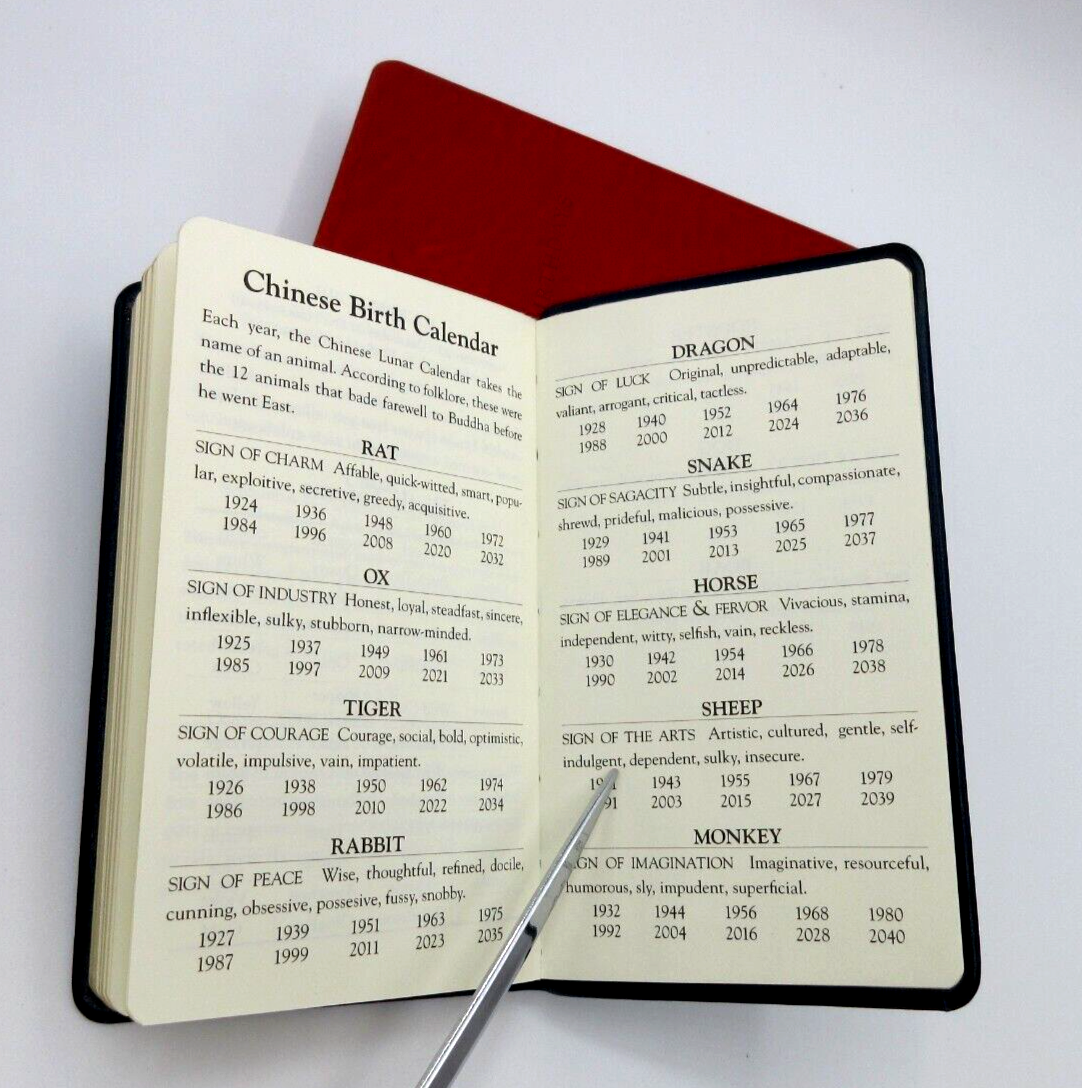 Chinese Birth Calendar
Each year, the Chinese Lunar Calendar takes the
name of an animal. According to folklore, these were
the 12 animals that bade farewell to Buddha before
he went East.
RAT
SIGN OF CHARM Affable, quick-witted, smart, popu-
lar, exploitive, secretive, greedy, acquisitive.
1924 1936 1948 1960 1972
1984 1996 2008 2020 2032
OX
SIGN OF INDUSTRY Honest, loyal, steadfast, sincere,
inflexible, sulky, stubborn, narrow-minded.
1925 1937 1949 1961 1973
1985 1997 2009 2021 2033
TIGER
SIGN OF COURAGE Courage, social, bold, optimistic,
volatile, impulsive, vain, impatient.
1926 1938 1950 1962 1974
1986 1998 2010 2022 2034
RABBIT
SIGN OF PEACE Wise, thoughtful, refined, docile,
cunning, obsessive, possesive, fussy, snobby.
1927 1939 1951 1963 1975
1987 1999 2011 2023 2035
DRAGON
SIGN OF LUCK Original, unpredictable, adaptable,
valiant, arrogant, critical, tactless.
1928 1940 1952 1964 1976
1988 2000 2012 2024 2036
SNAKE
SIGN OF SAGACITY Subtle, insightful, compassionate,
shrewd, prideful, malicious, possessive.
1929 1941 1953 1965 1977
1989 2001 2013 2025 2037
HORSE
SIGN OF ELEGANCE & FERVOR Vivacious, stamina,
independent, witty, selfish, vain, reckless.
1930 1942 1954 1966 1978
1990 2002 2014 2026 2038
SHEEP
SIGN OF THE ARTS Artistic, cultured, gentle, self-
indulgent, dependent, sulky, insecure.
1943 1955 1967 1979
2003 2015 2027 2039
MONKEY
SIGN OF IMAGINATION Imaginative, resourceful,
humorous, sly, impudent, superficial.
1932 1944 1956 1968 1980
1992 2004 2016 2028 2040